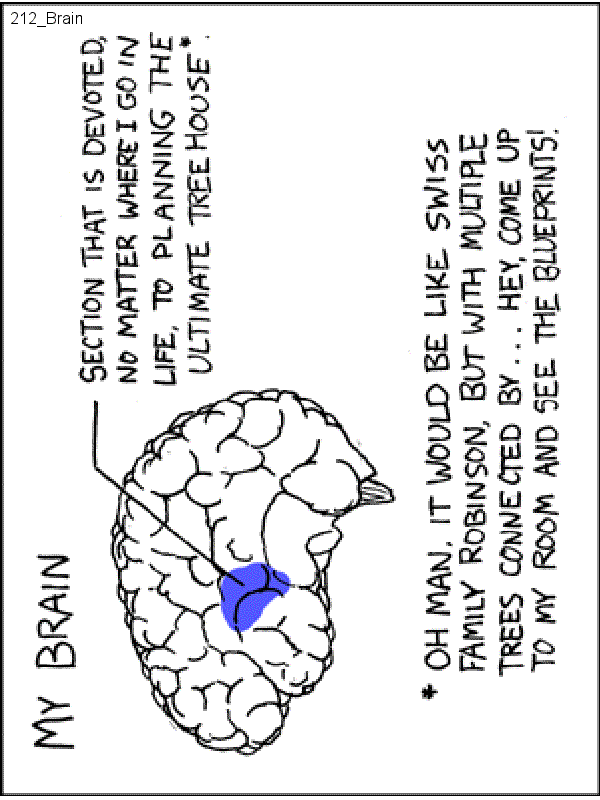 212_Brain
MY BRAIN
SECTION THAT IS DEVOTED,
NO MATTER WHERE I GO IN
LIFE, TO PLANNING THE
ULTIMATE TREE HOUSE*.
* OH MAN, IT WOULD BE LIKE SWISS
FAMILY ROBINSON, BUT WITH MULTIPLE
TREES CONNECTED BY... HEY, COME UP
TO MY ROOM AND SEE THE BLUEPRINTS!